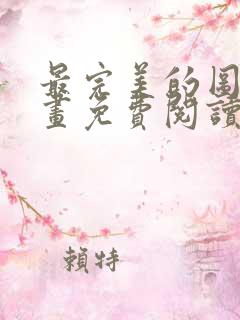 最完美的围
畫免費閱讀
賴特